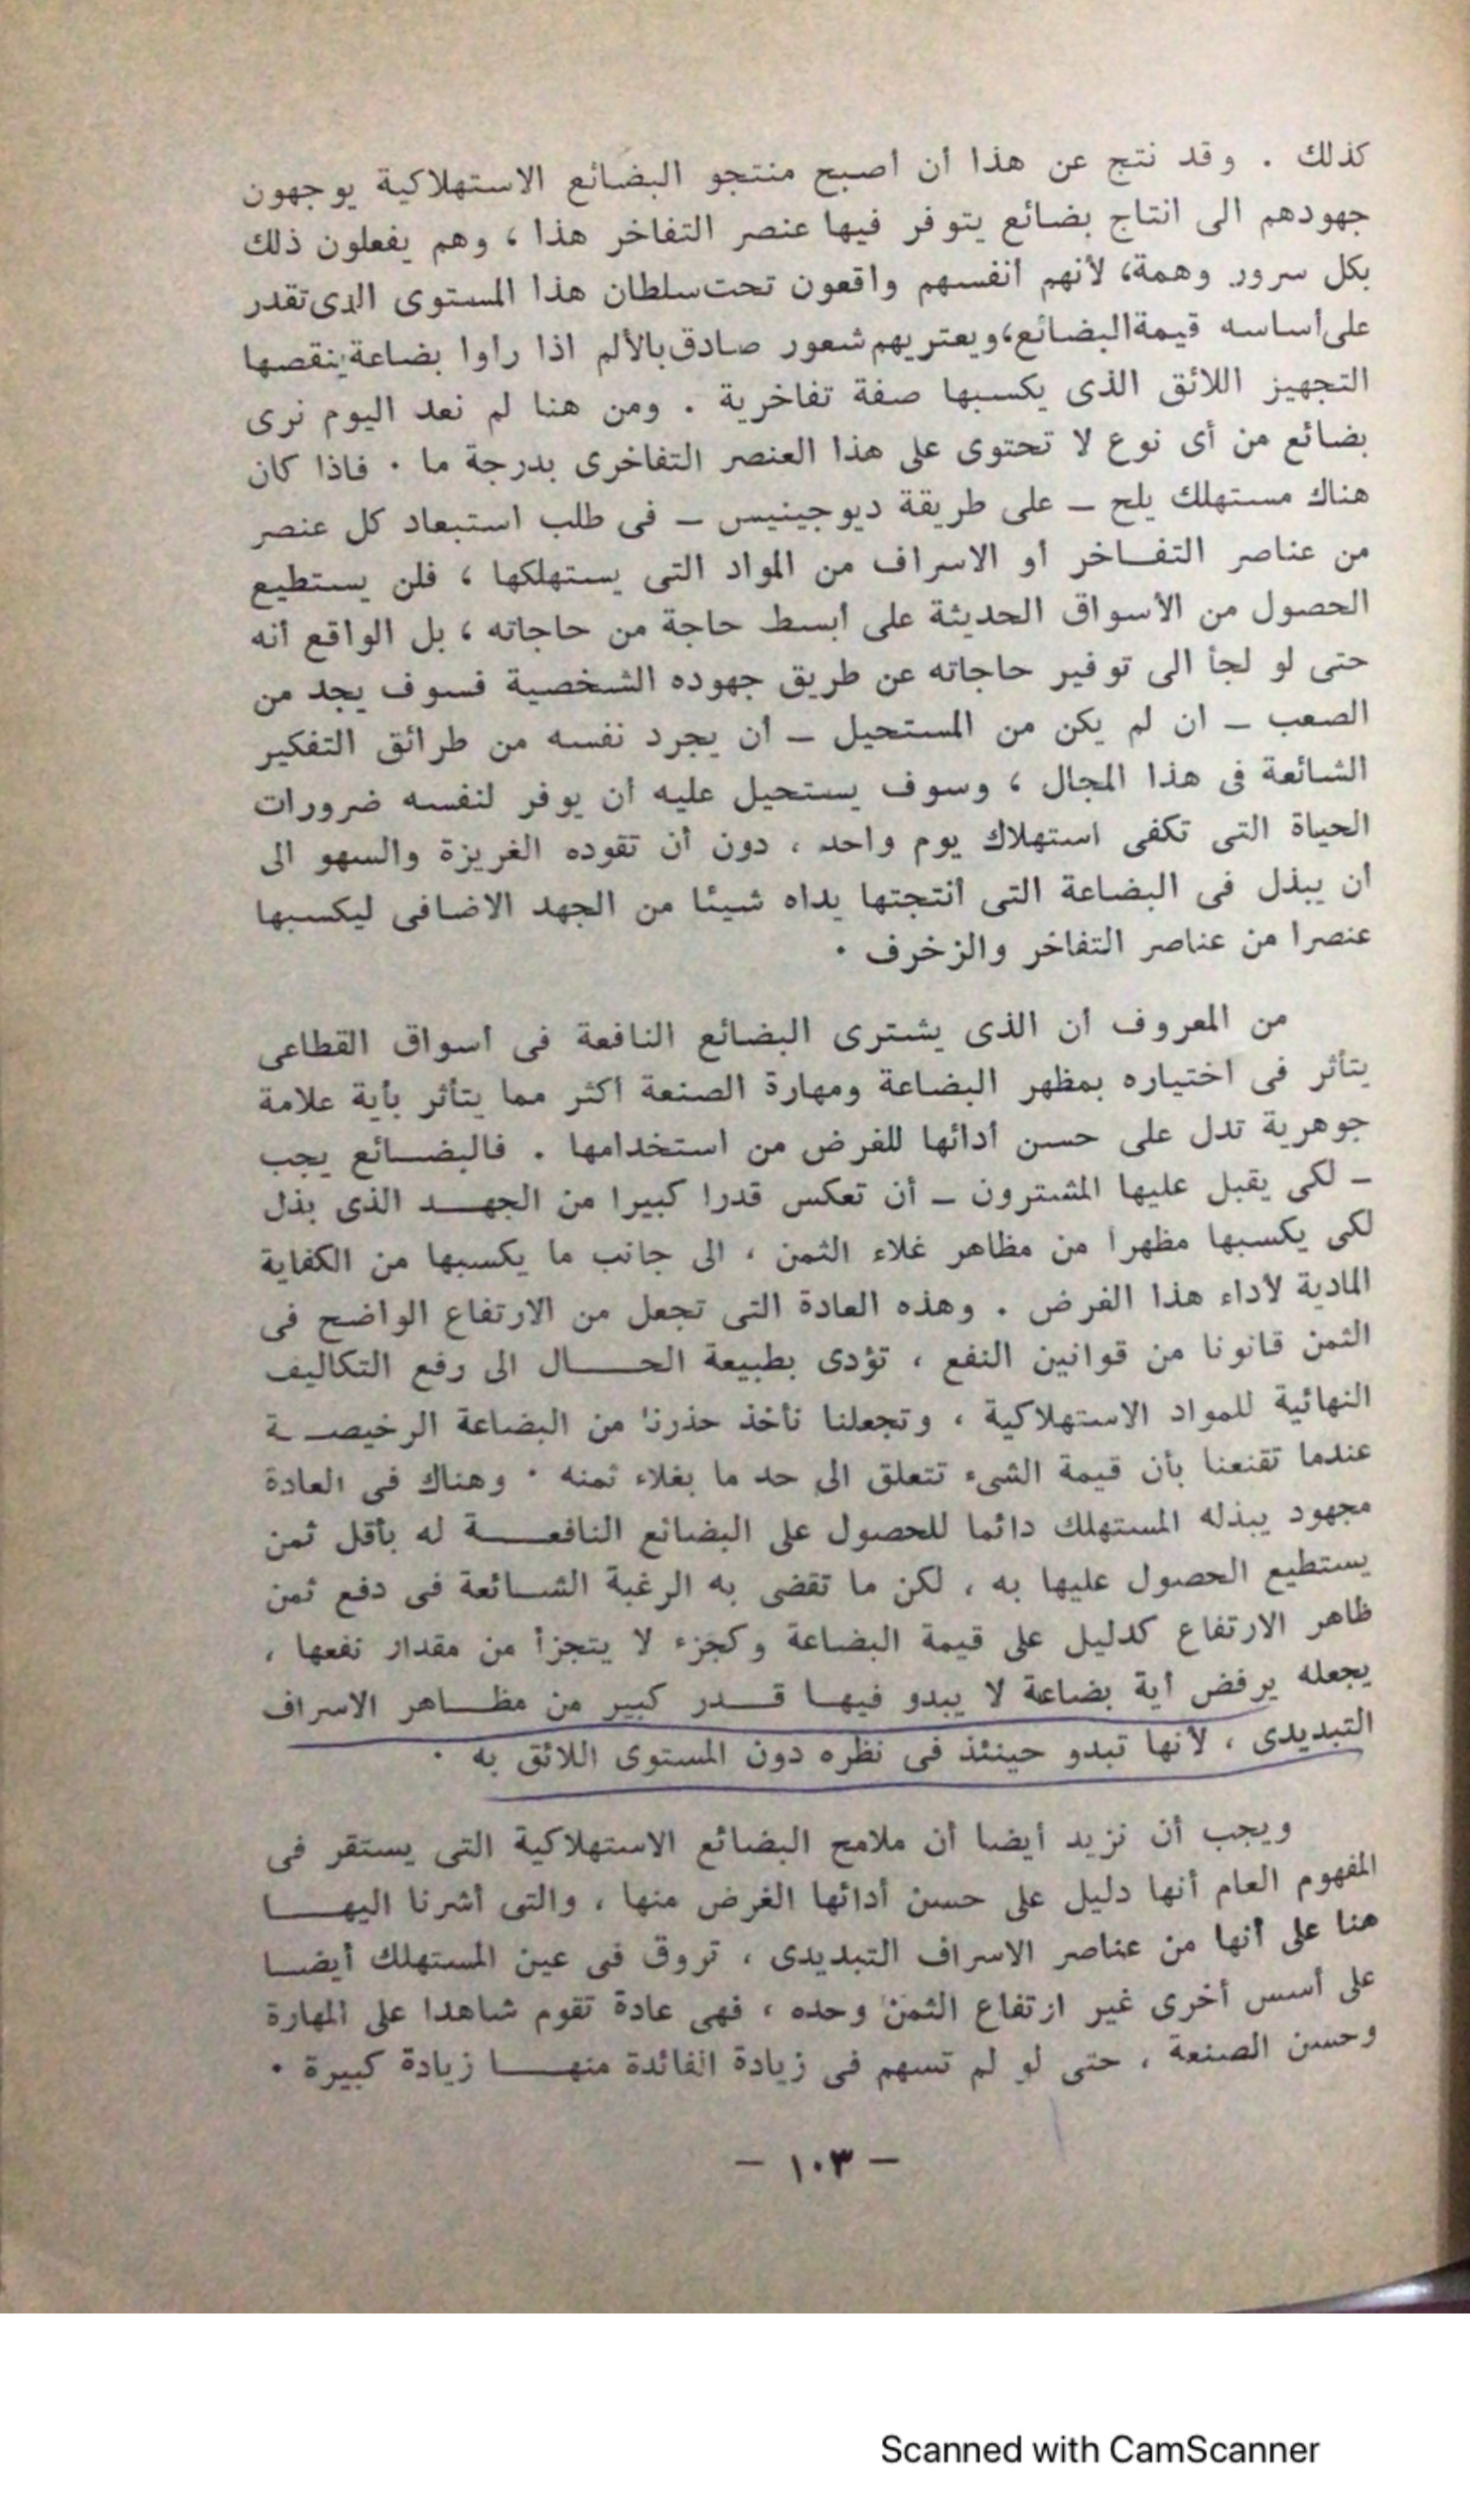 كذلك . وقد نتج عن هذا أن أصبح منتجو البضائع الاستهلاكية يوجهون
جهودهم الى انتاج بضائع يتوفر فيها عنصر التفاخر هذا ، وهم يفعلون ذلك
بكل سرور وهمة، لأنهم أنفسهم واقعون تحت سلطان هذا المستوى الذى تقدر
على أساسه قيمة البضائع، ويعتريهم شعور صادق بالألم اذا رأوا بضاعة ينقصها
التجهيز اللائق الذى يكسبها صفة تفاخرية . ومن هنا لم نعد اليوم نرى
بضائع من أى نوع لا تحتوى على هذا العنصر التفاخرى بدرجة ما . فاذا كان
هناك مستهلك يلح – على طريقة ديوجينيس – فى طلب استبعاد كل عنصر
من عناصر التفـاخر أو الاسراف من المواد التى يستهلكها ، فلن يستطيع
الحصول من الأسواق الحديثة على أبسط حاجة من حاجاته ، بل الواقع أنه
حتى لو لجأ الى توفير حاجاته عن طريق جهوده الشخصية فسوف يجد من
الصعب – ان لم يكن من المستحيل – أن يجرد نفسه من طرائق التفكير
الشائعة فى هذا المجال ، وسوف يستحيل عليه أن يوفر لنفسه ضرورات
الحياة التى تكفى استهلاك يوم واحد ، دون أن تقوده الغريزة والسهو الى
أن يبذل فى البضاعة التى أنتجتها يداه شيئا من الجهد الاضافى ليكسبها
عنصرا من عناصر التفاخر والزخرف .
من المعروف أن الذى يشترى البضائع النافعة فى أسواق القطاعى
يتأثر فى اختياره بمظهر البضاعة ومهارة الصنعة أكثر مما يتأثر بأية علامة
جوهرية تدل على حسن أدائها للغرض من استخدامها . فالبضـائع يجب
– لكى يقبل عليها المشترون – أن تعكس قدرا كبيرا من الجهـد الذى بذل
لكى يكسبها مظهرا من مظاهر غلاء الثمن ، الى جانب ما يكسبها من الكفاية
المادية لأداء هذا الغرض . وهذه العادة التى تجعل من الارتفاع الواضح فى
الثمن قانونا من قوانين النفع ، تؤدى بطبيعة الحـال الى رفع التكاليف
النهائية للمواد الاستهلاكية ، وتجعلنا نأخذ حذرنا من البضاعة الرخيصـة
عندما تقنعنا بأن قيمة الشىء تتعلق الى حد ما بغلاء ثمنه . وهناك فى العادة
مجهود يبذله المستهلك دائما للحصول على البضائع النافعـة له بأقل ثمن
يستطيع الحصول عليها به ، لكن ما تقضى به الرغبة الشـائعة فى دفع ثمن
ظاهر الارتفاع كدليل على قيمة البضاعة وكجزء لا يتجزأ من مقدار نفعها ،
يجعله يرفض أية بضاعة لا يبدو فيهـا قـدر كبير من مظـاهر الاسراف
التبديدى ، لأنها تبدو حينئذ فى نظره دون المستوى اللائق به .
ويجب أن نزيد أيضا أن ملامح البضائع الاستهلاكية التى يستقر فى
المفهوم العام أنها دليل على حسن أدائها الغرض منها ، والتى أشرنا اليهـا
هنا على أنها من عناصر الاسراف التبديدى ، تروق فى عين المستهلك أيضـا
على أسس أخرى غير ارتفاع الثمن وحده ، فهى عادة تقوم شاهدا على المهارة
وحسن الصنعة ، حتى لو لم تسهم فى زيادة الفائدة منهـا زيادة كبيرة .
– ١٠٣ –
Scanned with CamScanner